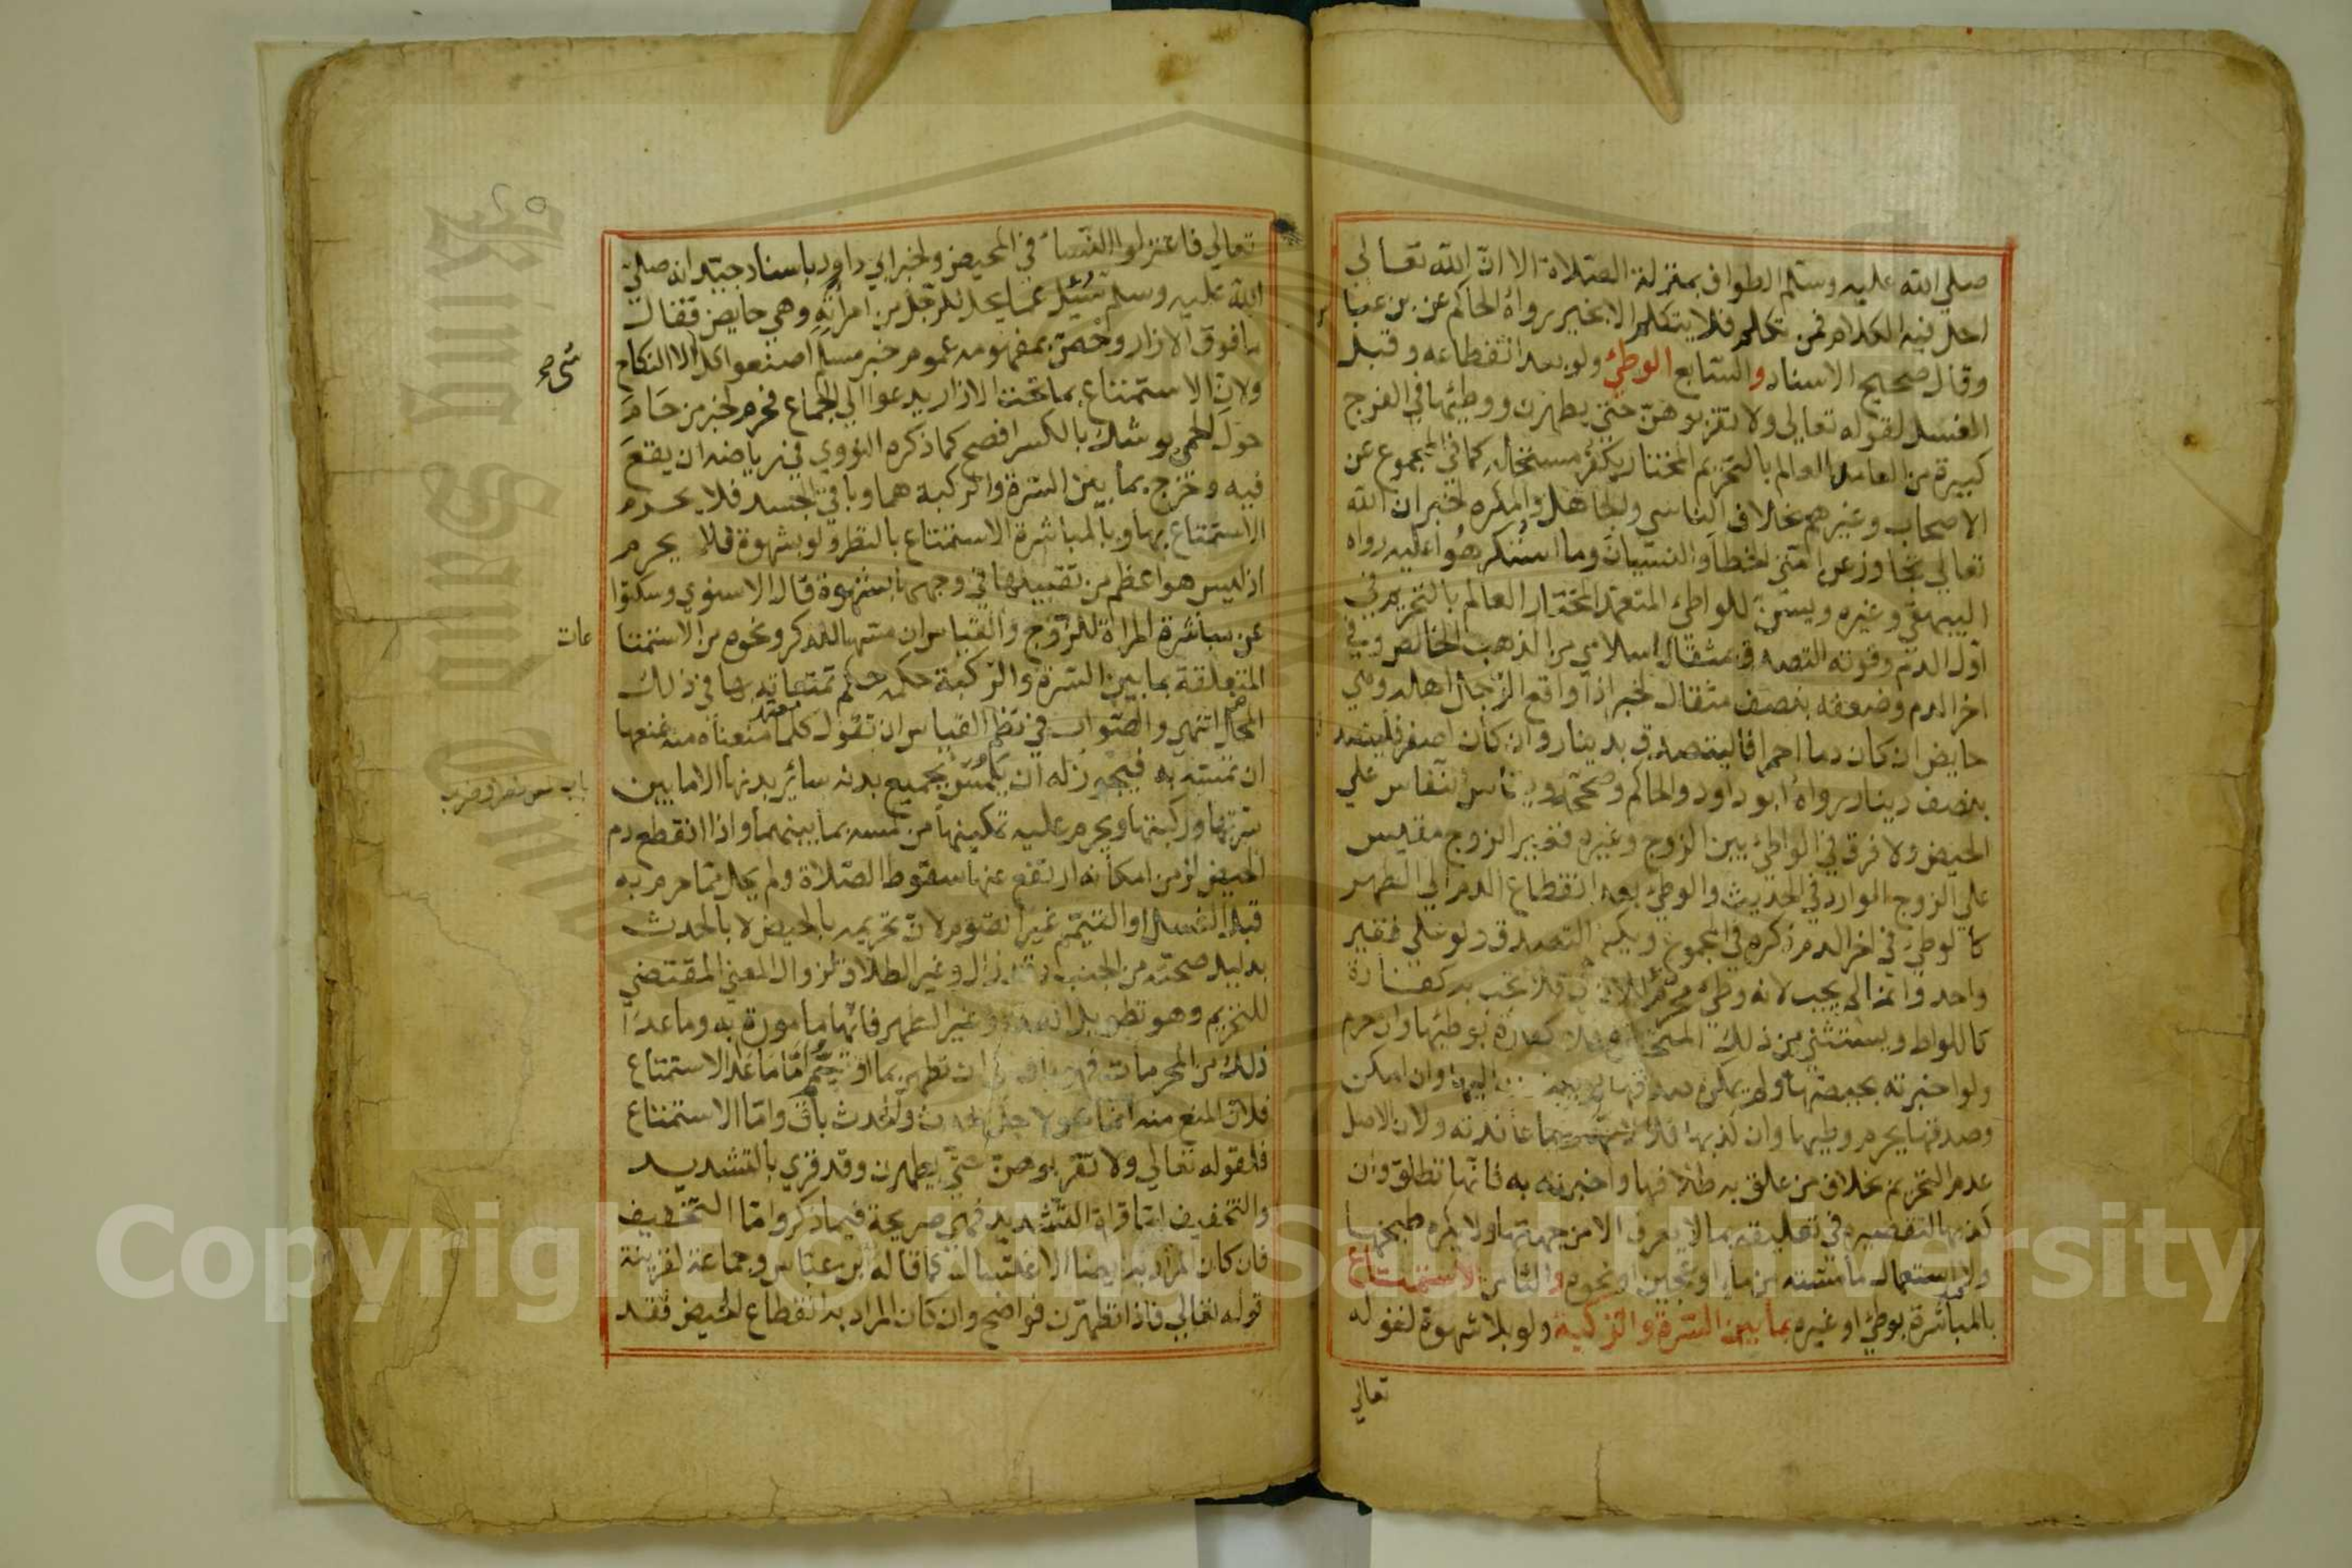 صلي الله عليه وسلم الطواف بمنزلة الصلاة الا ان الله تعالي
احل فيه الكلام فمن تكلم فلا يتكلم الا بخير رواه الحاكم عن بن عبا
وقال صحيح الاسناد والسابع الوطئ ولو بعد انقطاعه وقبل
الغسل لقوله تعالي ولا تقربوهن حتي يطهرن ووطئها في الفرج
كبيرة من العامد العالم بالتحريم المختار يكفر مستحله كما في المجموع عن
الاصحاب وغيرهم بخلاف الناسي والجاهل والمكره لخبر ان الله
تعالي تجاوز عن امتي الخطا والنسيان وما استكرهوا عليه رواه
البيهقي وغيره ويسن للواطئ المتعمد المختار العالم بالتحريم في
اول الدم وقوته التصدق بمثقال اسلامي من الذهب الخالص وفي
اخر الدم وضعفه بنصف مثقال لخبر اذا واقع الرجل اهله وهي
حايض ان كان دما احمر فاليتصدق بدينار وان كان اصفر فليتصد
بنصف دينار رواه ابو داود والحاكم وصححه ويقاس النفاس علي
الحيض ولا فرق في الواطئ بين الزوج وغيره فغير الزوج مقيس
علي الزوج الوارد في الحديث والوطئ بعد انقطاع الدم الي الطهر
كالوطئ في اخر الدم ذكره في المجموع ويكفي التصدق ولو علي فقير
واحد وانما لم يجب لانه وطئ محرم للاذي فلا تجب به كفارة
كاللواط ويستثني من ذلك المتحيرة فلا كفارة بوطئها وان حرم
ولو اخبرته بحيضها ولم يمكن صدقها لم يلتفت اليها وان امكن
وصدقها يحرم وطيها وان كذبها فلا لانها ربما عاندته ولان الاصل
عدم التحريم بخلاف من علق به طلاقها واخبرته به فانها تطلق وان
كذبها لتقصيره في تعليقه بما لا يعرف الا من جهتها ولا يكره طبخها
ولا استعمال ما مسته من ماء او عجين او نحوه والثامن الاستمتاع
بالمباشرة بوطئ او غيره بما بين السرة والركبة ولو بلا شهوة لقوله
تعالي
تعالي فاعتزلوا النساء في المحيض ولخبر ابي داود باسناد جيد انه صلي
الله عليه وسلم سئل عما يحل للرجل من امراته وهي حايض فقال
ما فوق الازار وخص بمفهومه عموم خبر مسلم اصنعوا كل الا النكاح
شئ صح
ولان الاستمتاع بما تحت الازار يدعوا الي الجماع فحرم لخبر من حام
حول الحمي يوشك بالكسر افصح كما ذكره النووي في رياضه ان يقع
فيه وخرج بما بين السرة والركبة هما وباقي الجسد فلا يحرم
الاستمتاع بها وبالمباشرة الاستمتاع بالنظر ولو بشهوة فلا يحرم
اذ ليس هو اعظم من تقبيلها في وجهها بشهوة قال الاسنوي وسكتوا
عن مباشرة المراة للزوج والقياس ان مسها للذكر ونحوه من الاستمتا
عات
المتعلقة بما بين السرة والركبة حكمه حكم تمتعاته بها في ذلك
المحل انتهي والصواب في نظم القياس ان تقول كلما منعناه منه نمنعها
ان تمسه به فيجوز له ان يلمس بجميع بدنه سائر بدنها الا ما بين
سرتها وركبتها ويحرم عليه تمكينها من لمسه بما بينهما واذا انقطع دم
الحيض لزمن امكانه ارتفع عنها سقوط الصلاة ولم يحل مما حرم به
قبل الغسل او التيمم غير الصوم لان تحريمه بالحيض لا بالحدث
بدليل صحته من الجنب وقد زال وغير الطلاق لزوال المعني المقتضي
للتحريم وهو تطويل العدة وغير الطهر فانها مامورة به وما عدا
ذلك من المحرمات فهو باق الي ان تطهر بماء او تيمم اما ما عدا الاستمتاع
فلان المنع منه انما هو لاجل الحدث والحدث باق واما الاستمتاع
فلقوله تعالي ولا تقربوهن حتي يطهرن وقد قري بالتشديد
والتخفيف اما قراة التشديد فهي صريحة فيما ذكر واما التخفيف
فان كان المراد به ايضا الاغتسال كما قاله بن عباس وجماعة لقرينة
قوله تعالي فاذا تطهرن فواضح وان كان المراد به انقطاع الحيض فقد
Copyright © King Saud University
King Saud University